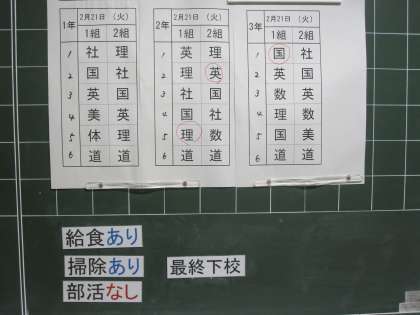 1年 2月21日（火） 1組 2組
1 社 理
2 国 社
3 英 国
4 美 英
5 体 理
6 道 道
2年 2月21日（火） 1組 2組
1 英 理
2 理 英
3 社 国
4 国 社
5 理 数
6 道 道
3年 2月21日（火） 1組 2組
1 国 社
2 英 国
3 数 英
4 理 数
5 国 美
6 道 道
給食あり
掃除あり 最終下校
部活なし